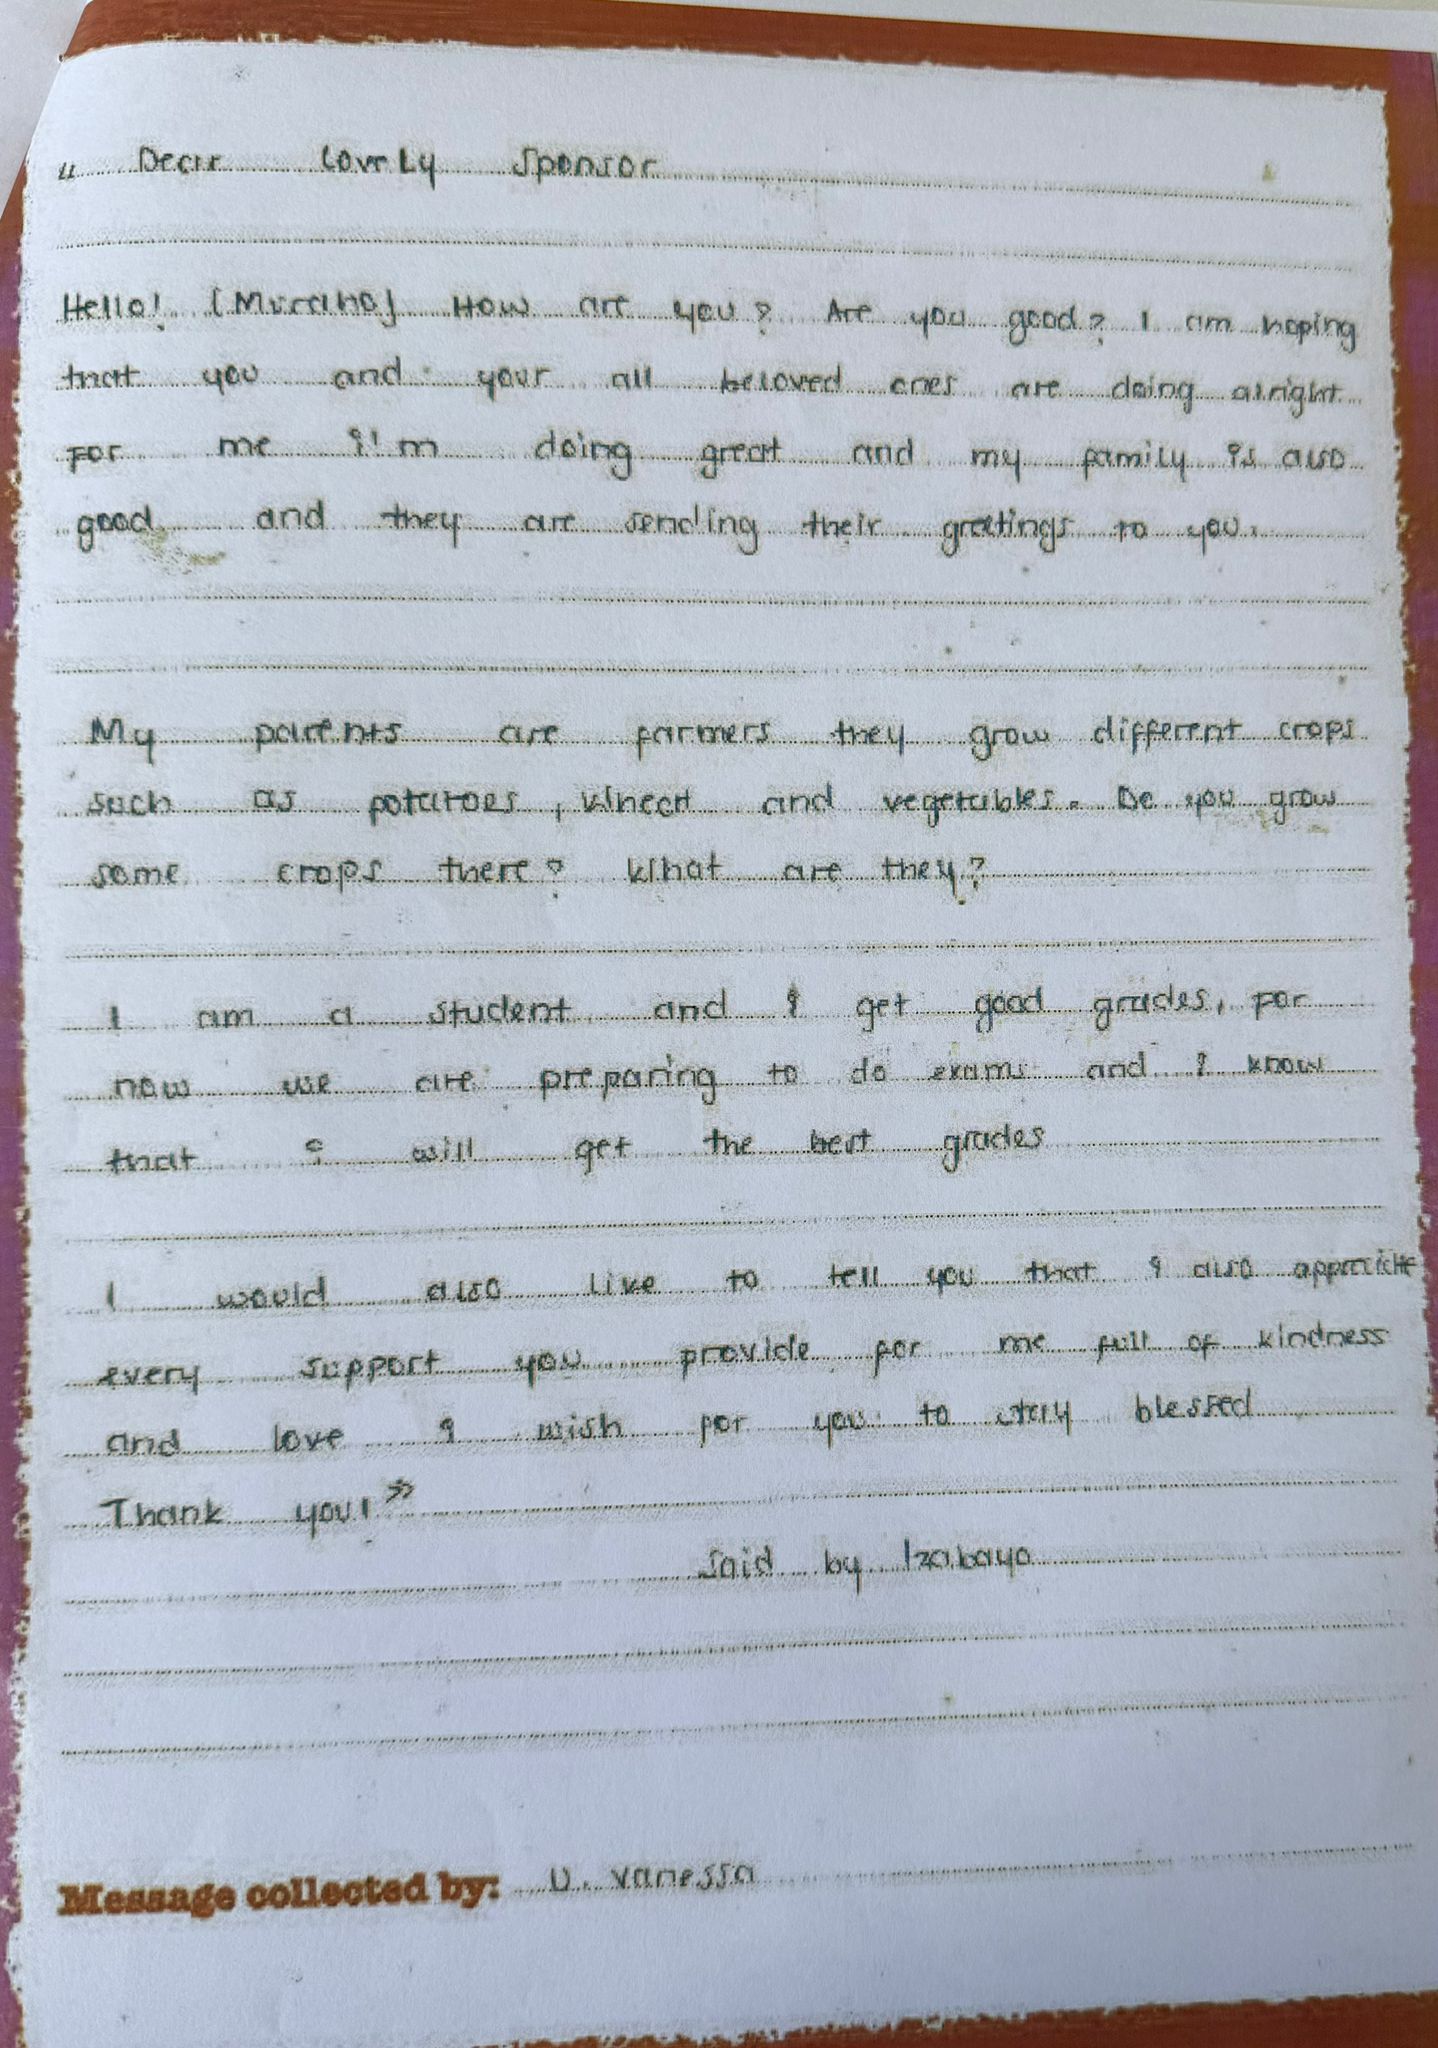 " Dear lovely sponsor
Hello! [Muraho] How are you? Are you good? I am hoping
that you and your all beloved ones are doing alright
for me I'm doing great and my family is also
good and they are sending their greetings to you.
My parents are farmers they grow different crops
such as potatoes, Wheat and vegetables. Do you grow
some crops there? What are they?
I am a student and I get good grades, for
now we are preparing to do exams and I know
that I will get the best grades
I would also like to tell you that I also appreciate
every support you provide for me full of kindness
and love I wish for you to stay blessed
Thank you! »
Said by Izabayo
Message collected by: U. Vanessa